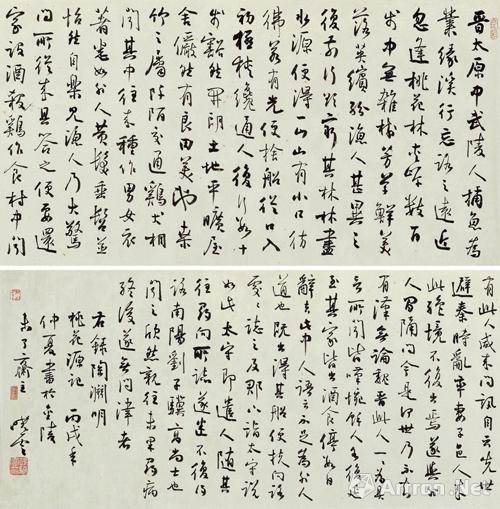 晋太原中武陵人捕魚為
業缘溪行忘路之遠近
忽逢桃花林夹岸数百
步中無雜樹芳草鮮美
落英繽紛漁人甚異之
復前行欲窮其林林盡
水源便得一山山有小口彷
彿若有光便捨船從口入
初極狭纔通人復行数十
步豁然開朗土地平曠屋
舍儼然有良田美池桑
竹之屬阡陌交通鷄犬相
聞其中往来種作男女衣
著悉如外人黄髮垂髫並
怡然自樂見漁人乃大驚
問所從来具答之便要還
家設酒殺鷄作食村中聞
有此人咸来問訊自云先世
避秦時亂率妻子邑人来
此絶境不復出焉遂與外
人間隔問今是何世乃不知
有漢無論魏晋此人一一為具
言所聞皆嘆惋餘人各復延
至其家皆出酒食停数日
辭去此中人語云不足為外人
道也既出得其船便扶向路
處處誌之及郡下詣太守説
如此太守即遣人随其
往尋向所誌遂迷不復得
路南陽劉子驥高尚士也
聞之欣然親往未果尋病
終後遂無問津者
右録陶渊明
桃花源記 丙戌年
仲夏書於金陵
未了齋
Artron.Net